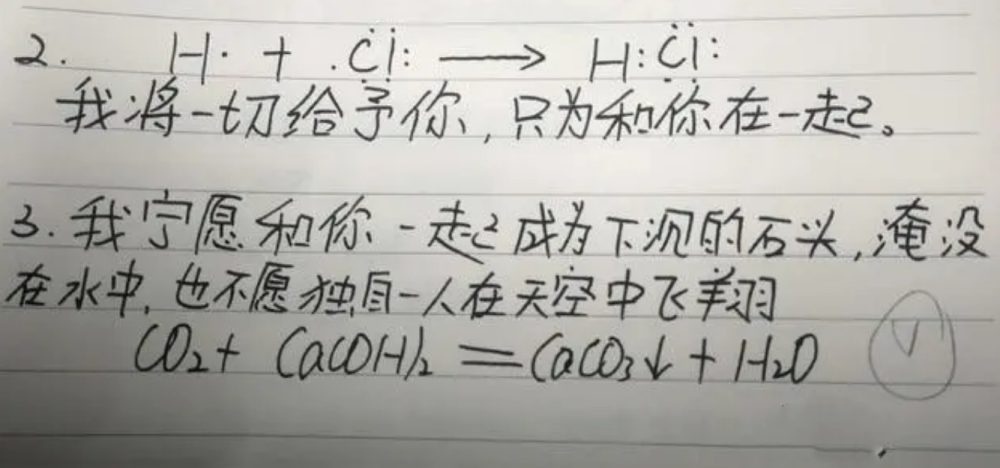 2. H· + ·C̈l: ⟶ H:C̈l:
我将一切给予你,只为和你在一起。
3.我宁愿和你一起成为下沉的石头,淹没
在水中,也不愿独自一人在天空中飞翔
CO₂+ Ca(OH)₂ = CaCO₃↓ + H₂O